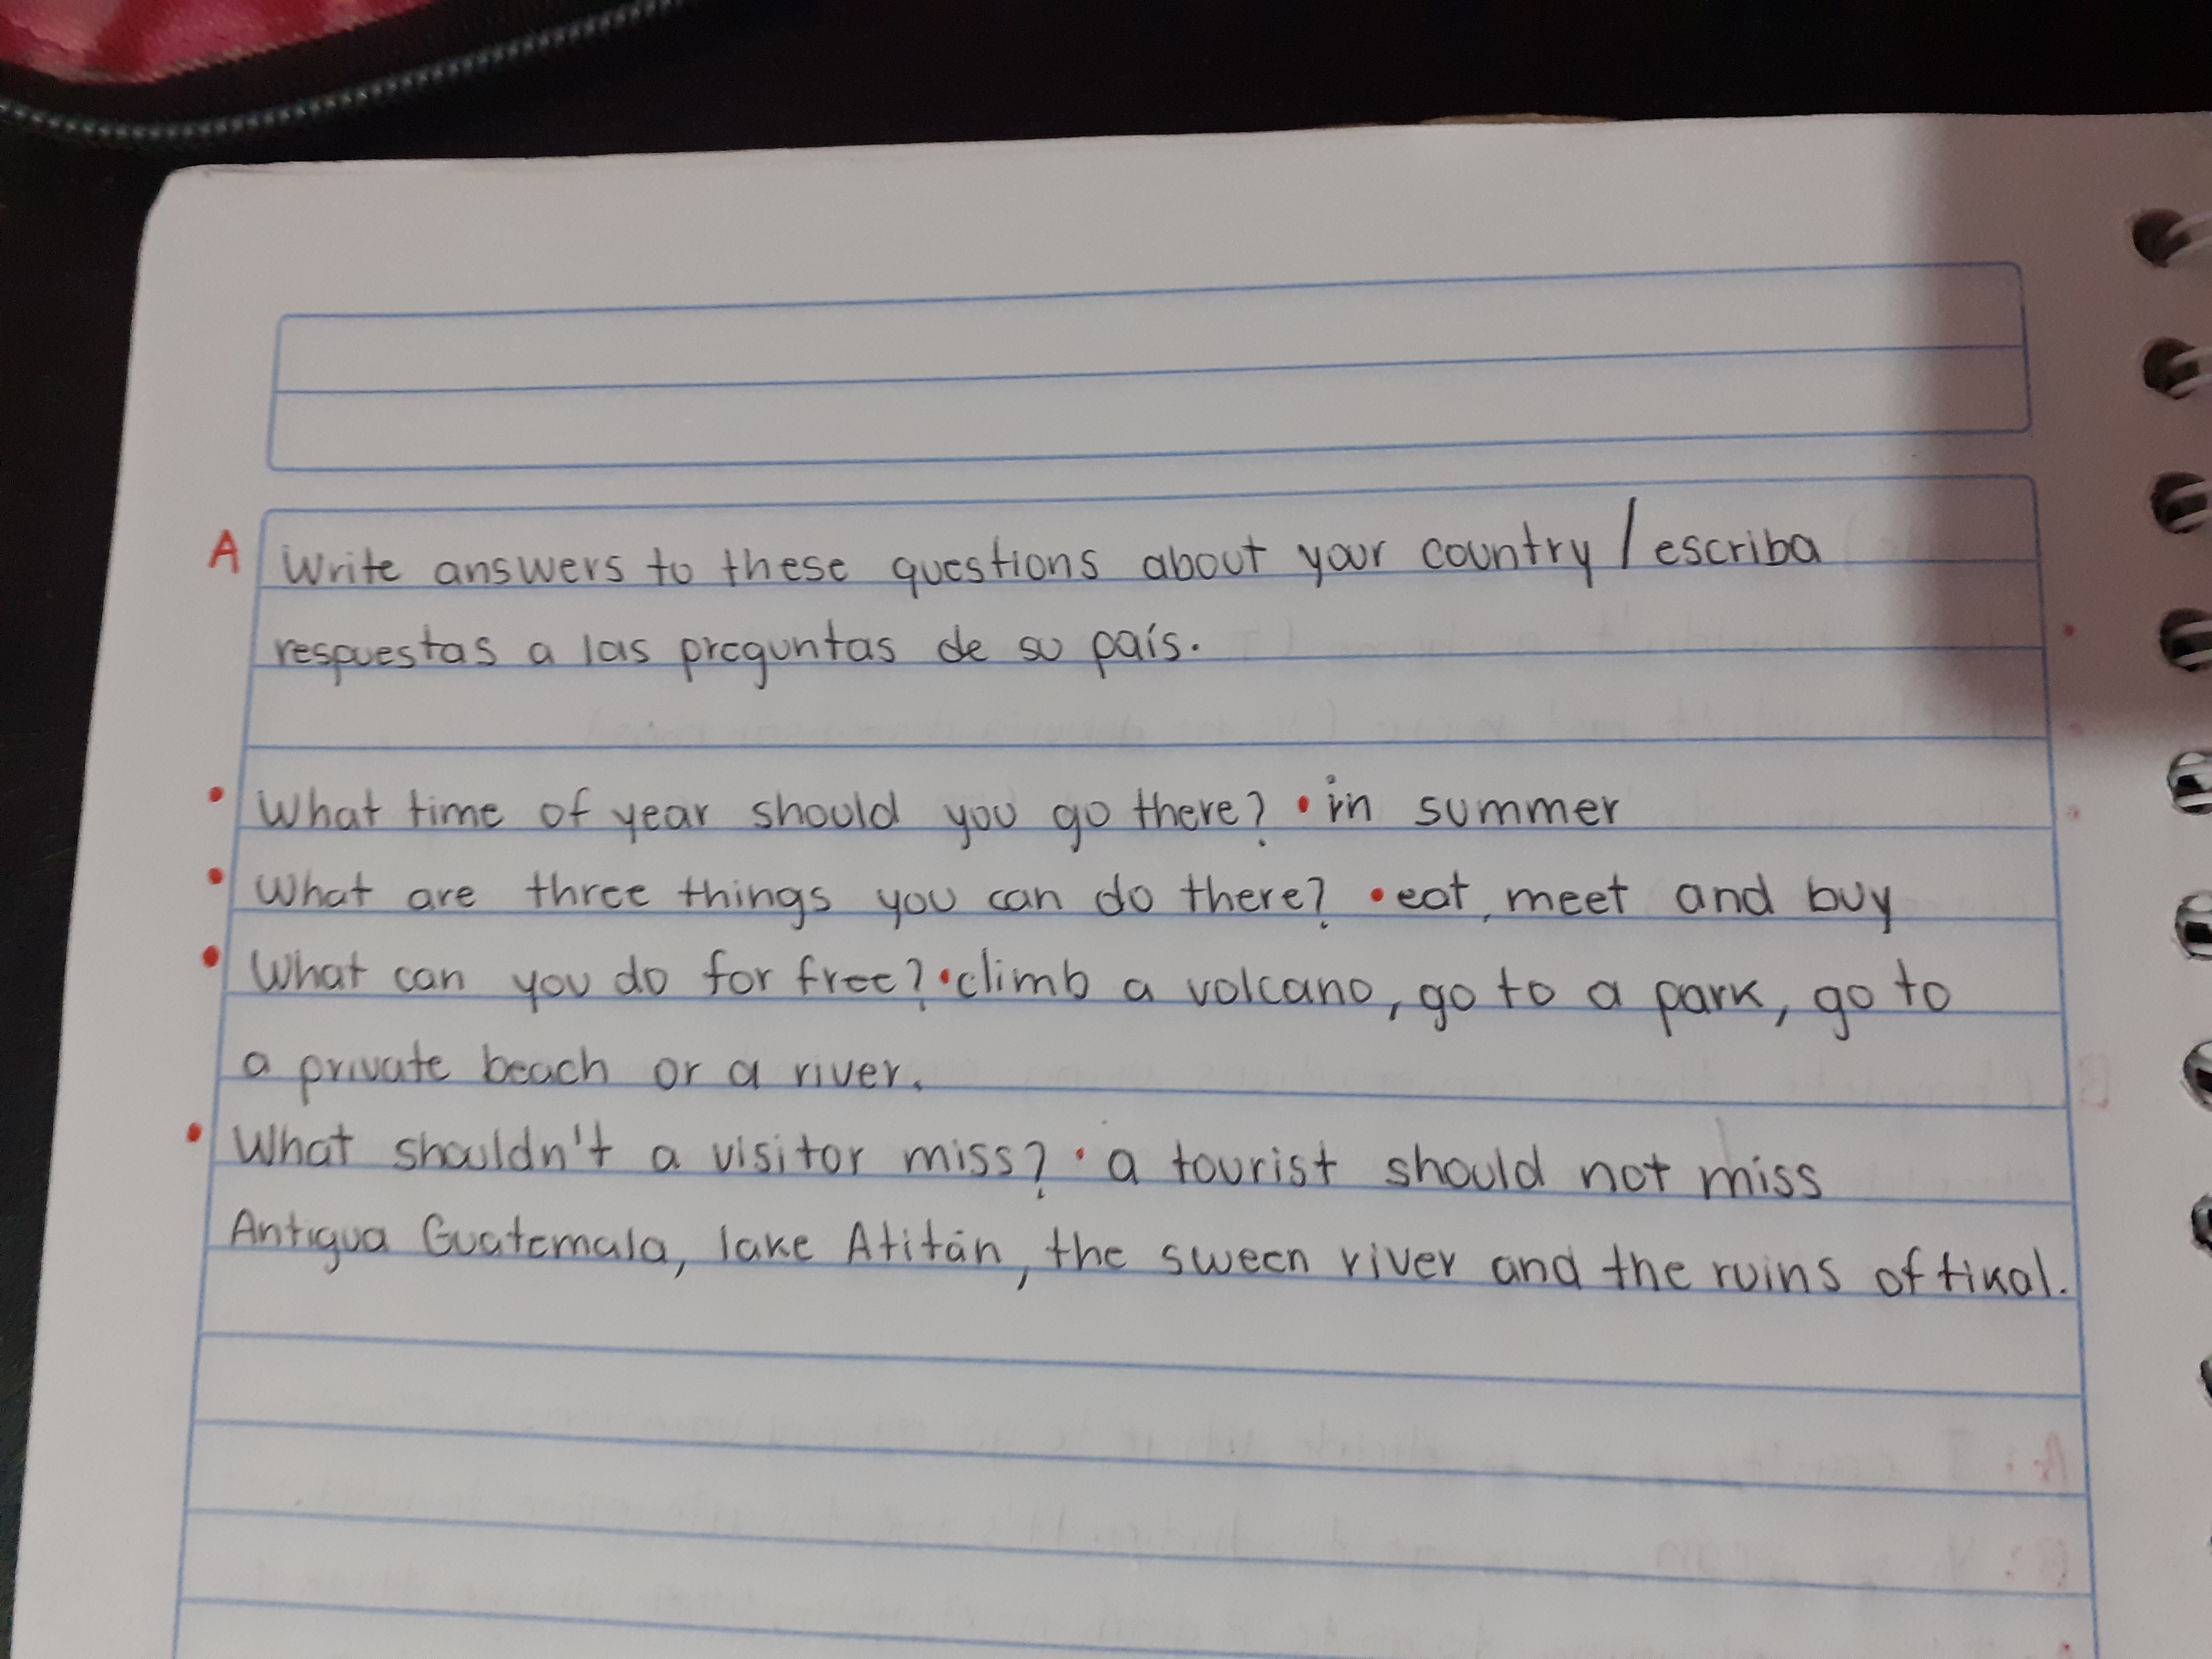 A Write answers to these questions about your country / escriba
respuestas a las preguntas de su país.
• What time of year should you go there? • in summer
• What are three things you can do there? • eat, meet and buy
• What can you do for free? • climb a volcano, go to a park, go to
a private beach or a river.
• What shouldn't a visitor miss? • a tourist should not miss
Antigua Guatemala, lake Atitán, the sween river and the ruins of tikal.